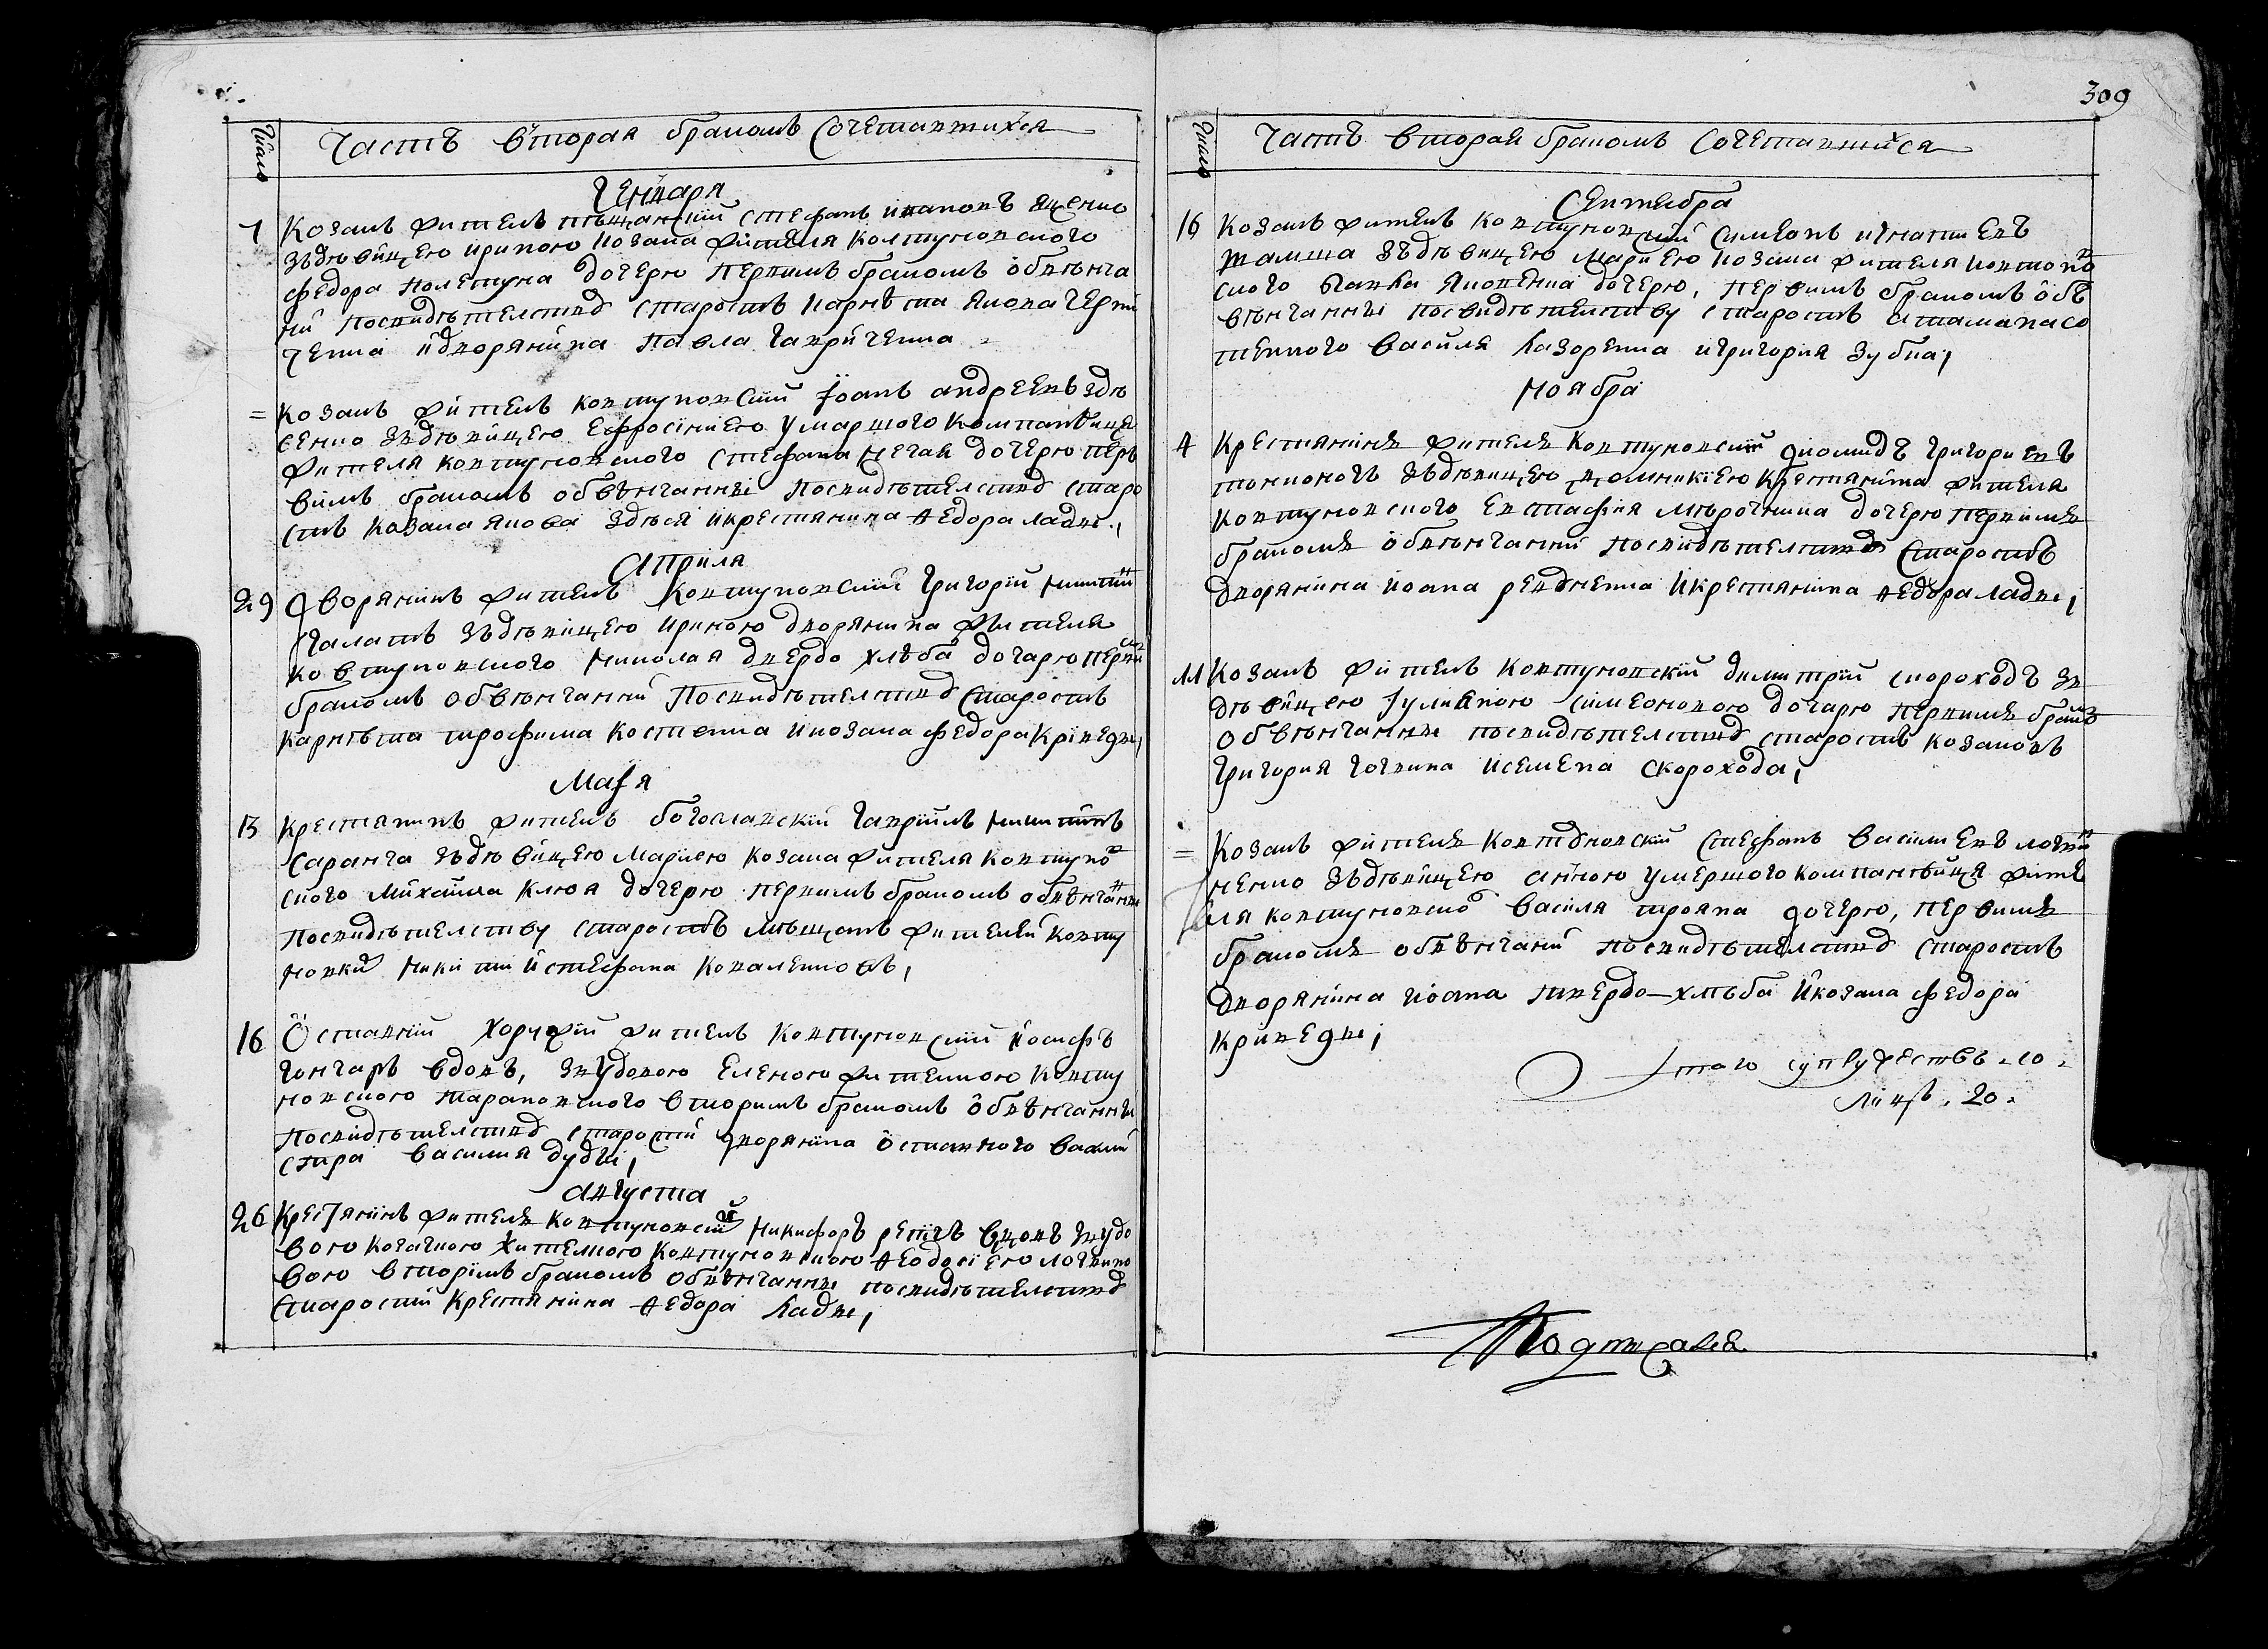 Число
Часть вторая бракомъ сочетавшихся
Генваря
1 Козакъ житель пѣщанскій Стефанъ Ивановъ Яценко
зъдѣвицею Ириною козака жителя Колтуновского
Федора Колетука дочерю первимъ бракомъ обвѣнча
ни посвидѣтелству старостъ Карнѣта Якова Черни
ченка идворянина Павла Гавриченка
= Козакъ житель Ковтуновскій Іоанъ Андреевъ Здѣ
сенко зъдѣвицею Евфросиніею умаршого компанѣйца
жителя Ковтуновского Стефана Нечая дочерю пер
вимъ бракомъ обвѣнчаннѣ посвидѣтелству старо
стъ козака Якова Здѣся икрестянина Ѳедора Ладки,
Априля
29 Дворянинъ житель Ковтуновскій Григорій Никитин
Галатъ зъдѣвицею Ириною дворянина жителя
Ковтуновского Николая Твердохлѣба дочарю перви
бракомъ обвѣнчанни посвидѣтелству старостъ
Карнѣта Трофима Костенка икозака Федора Криведи,
Маія
13 Крестянинъ житель Богославскій Гавріилъ Никитинъ
Саранча зъдѣвицею Маріею козака жителя Ковтуно
ского Михайла Клюя дочерю первимъ бракомъ обвѣнчаннѣ
посвидѣтелству старостъ мѣщанъ жителей Ковту
новки Никити иСтефана Коваленковъ,
16 Оставній хоружій житель Ковтуновскій Іосифъ
Гончаръ вдовъ, звудовою Еленою жителкою Ковту
новскою Тарановского вторимъ бракомъ обвѣнчаннѣ
посвидѣтелству старости дворянина оставного
Василия Дудки,
Августа
26 Крестянинъ житель Ковтуновскій Никифоръ Репичъ вдовъ звудо
вою козачкою жителкою Ковтуновскою Ѳеодосіею
вою вторимъ бракомъ обвѣнчаннѣ посвидѣтелству
старости крестянина Ѳедора Ладки,
309
Число
Часть вторая бракомъ сочетавшихся
Сентебра
16 Козакъ житель Ковтуновскій Симеонъ Игнатиевъ
зъдѣвицею Мариею козака жителя Ковтуно
ского Павла Яковенка дочерю, первимъ бракомъ об
вѣнчаннѣ посвидѣтелству старостъ атамана со
тенного Василя Лазоренка иГригория Зубка,
Ноября
4 Крестянинъ житель Ковтуновскій Диомидъ Григориевъ
зъдѣвицею Домникіею крестянина жителя
Ковтуновского Евстафия Мѣрочника дочерю первимъ
бракомъ обвѣнчанни посвидѣтелству старостъ
дворянина Иоана икрестянина Ѳедора Ладки,
11 Козакъ житель Ковтуновскій Димитрій Скороходъ зъ
дѣвицею Іулияною Симеоновою дочарю первимъ бракомъ
обвѣнчаннѣ посвидѣтелству старостъ козаковъ
Григория Логвина иСемена Скорохода,
= Козакъ житель Ковтуновскій Стефанъ Василиевъ Логви
ненко зъдѣвицею Анною умершого компанѣйця жите
ля Ковтуновско Василя Трояна дочерю, первимъ
бракомъ обвѣнчани посвидѣтелству старостъ
дворянина Иоана Твердо-хлѣба икозака Федора
Криведи,
Итого супружествъ 10.
лицъ. 20.